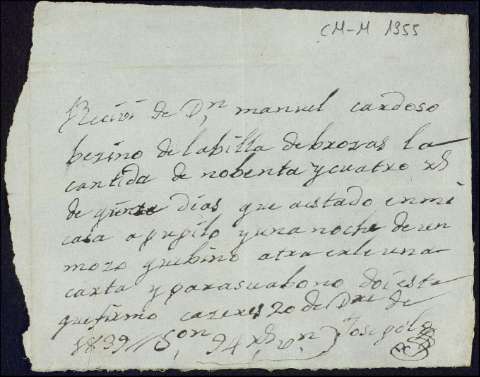 CM-M 1355
Recivi de Dn manuel cardoso
bezino de la billa de brozas la
cantida de nobenta y cuatro rs
de quinze dias que a estado en mi
casa a pupilo y una noche de un
mozo que bino a traerle una
carta y para su abono doi esta
que firmo cazeres 20 de Dre de
1839 // Son, 94 rs vn Jose